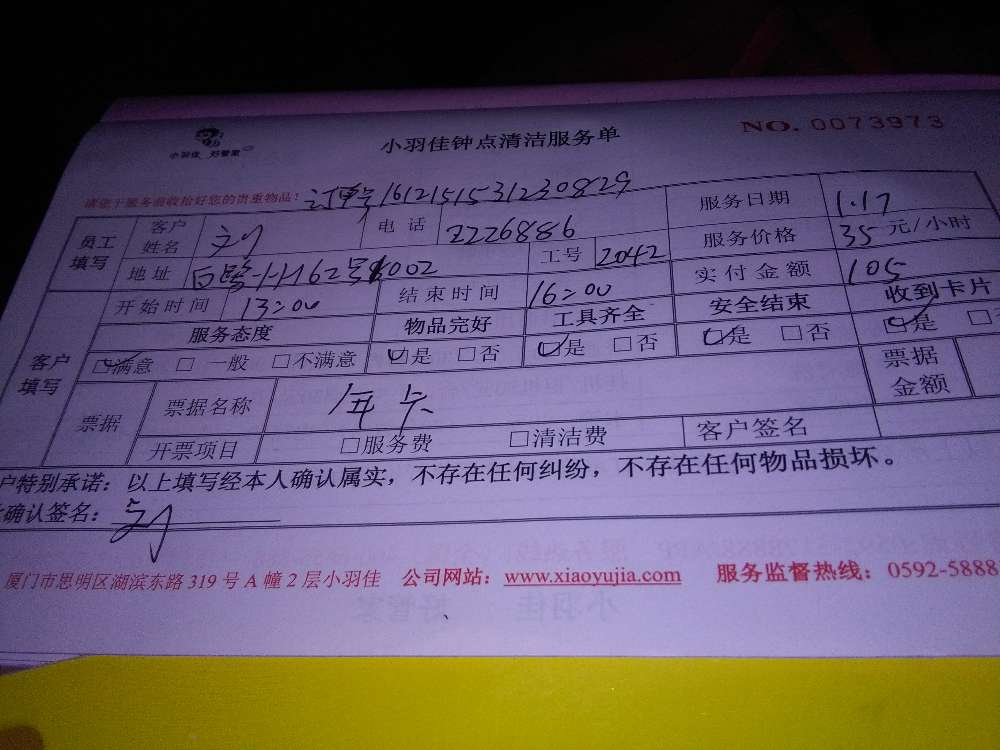 小羽佳 好管家
小羽佳钟点清洁服务单
NO. 0073973
请您于服务前收拾好您的贵重物品！ 订单号161215153123 0829
员工填写 客户姓名 刘 电话 2226886 服务日期 1.17
地址 白鹭 162号 1002 工号 2042 服务价格 35 元/小时
开始时间 13:00 结束时间 16:00 实付金额 105
客户填写 服务态度 物品完好 工具齐全 安全结束 收到卡片
☑满意 □一般 □不满意 ☑是 □否 ☑是 □否 ☑是 □否 ☑是 □
票据 票据名称 年卡 票据金额
开票项目 □服务费 □清洁费 客户签名
户特别承诺：以上填写经本人确认属实，不存在任何纠纷，不存在任何物品损坏。
确认签名：刘
厦门市思明区湖滨东路 319 号 A 幢 2 层小羽佳 公司网站：www.xiaoyujia.com 服务监督热线：0592-5888